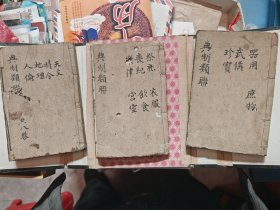 典制類聯
天文
時令
地理
人倫
共八卷
典制類聯
祭祀 衣服
喪紀 飲食
樂律 宮室
典制類聯
器用 庶物
武備
珍寶